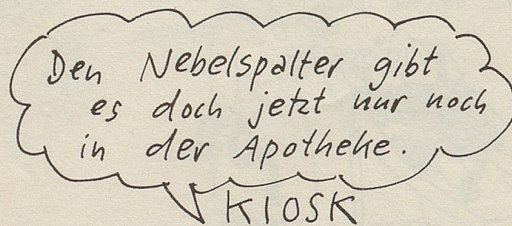 Den Nebelspalter gibt
es doch jetzt nur noch
in der Apotheke.
KIOSK